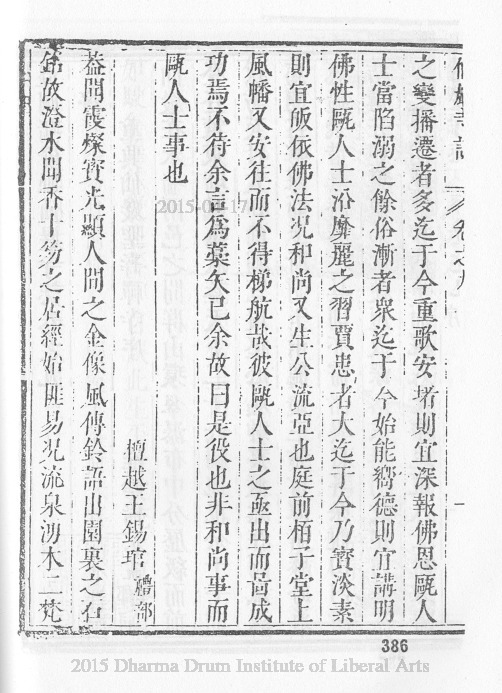 仙巖寺記 卷之九
之變播遷者多迄于今重歌安堵則宜深報佛恩甌人
士當陷溺之餘俗漸者衆迄于今始能嚮德則宜講明
佛性甌人士沿靡麗之習賈患者大迄于今乃寳淡素
則宜皈依佛法况和尚又生公流亞也庭前栢子堂上
風幡又安往而不得梯航哉彼甌人士之亟出而啚成
功焉不待余言爲蒭矢已余故曰是役也非和尚事而
甌人士事也
檀越王錫琯 禮部
葢聞霞燦寳光顯人間之金像風傳鈴語出園裏之石
銘故澄水聞香十笏之居經始匪易况流泉湧木二梵
386
2015-03-17
2015 Dharma Drum Institute of Liberal Arts